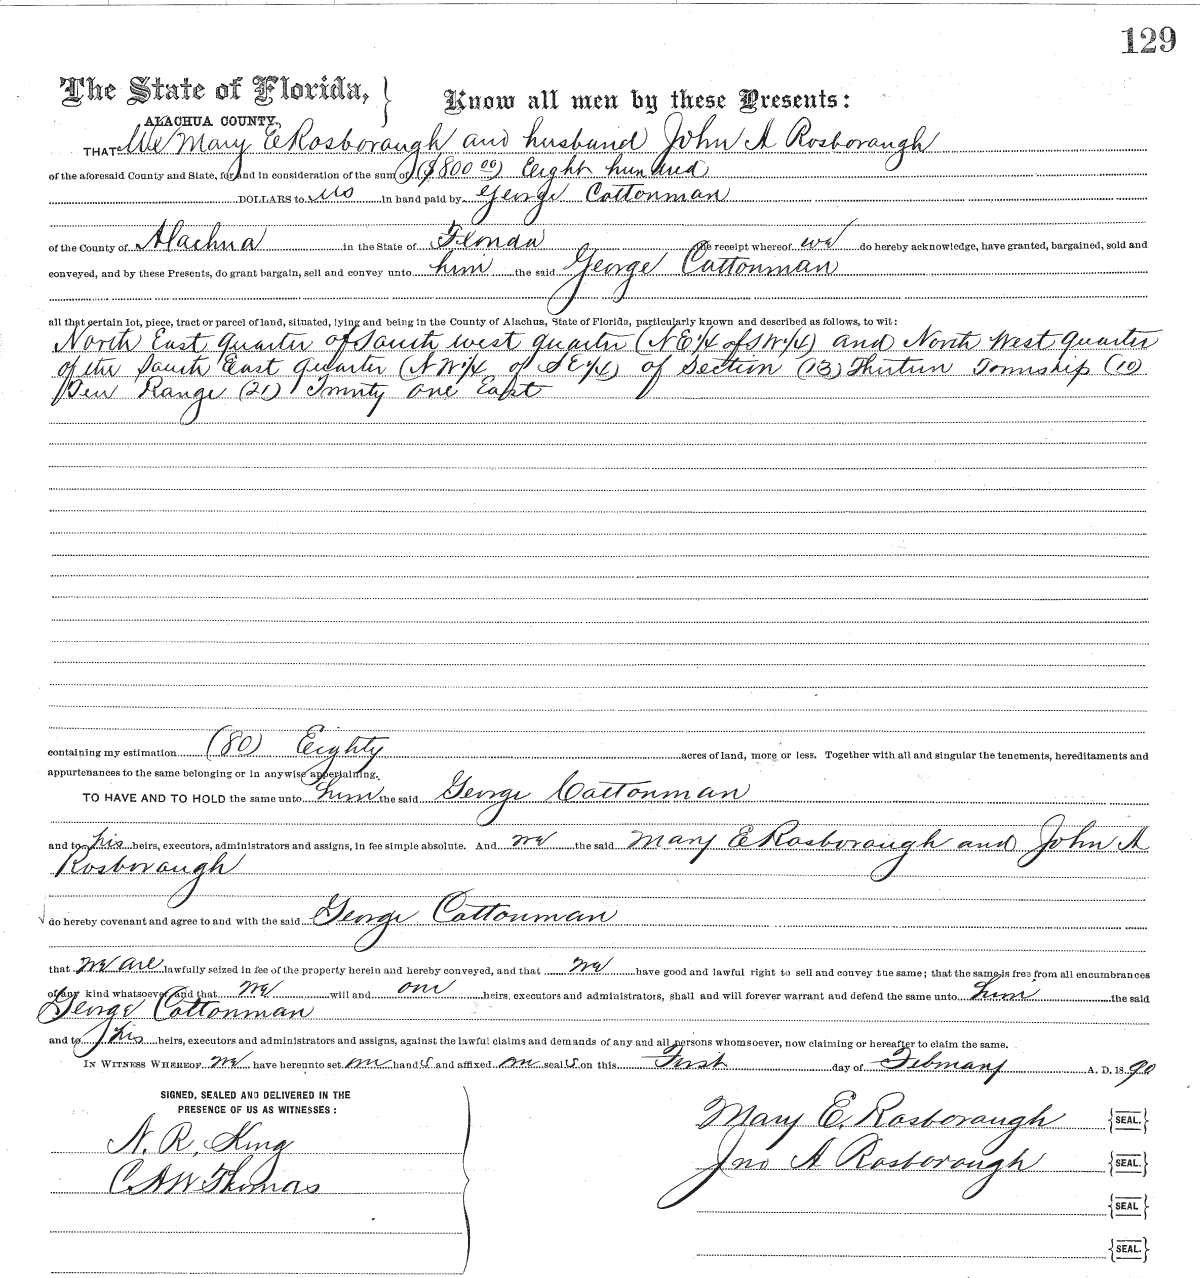 129
The State of Florida, } Know all men by these Presents:
ALACHUA COUNTY,
THAT We Mary E Rosborough and husband John A Rosborough
of the aforesaid County and State, for and in consideration of the sum of ($800 00) Eight hundred
DOLLARS to us in hand paid by George Cottonman
of the County of Alachua in the State of Florida the receipt whereof we do hereby acknowledge, have granted, bargained, sold and
conveyed, and by these Presents, do grant bargain, sell and convey unto him the said George Cottonman
all that certain lot, piece, tract or parcel of land, situated, lying and being in the County of Alachua, State of Florida, particularly known and described as follows, to wit:
North East quarter of South west quarter (N E 1/4 of S W 1/4) and North West quarter
of the South East quarter (N W 1/4 of S E 1/4) of Section (13) Thirteen Township (10)
Ten Range (21) Twenty one East
containing my estimation (80) Eighty acres of land, more or less. Together with all and singular the tenements, hereditaments and
appurtenances to the same belonging or in anywise appertaining.
TO HAVE AND TO HOLD the same unto him the said George Cottonman
and to his heirs, executors, administrators and assigns, in fee simple absolute. And we the said Mary E Rosborough and John A
Rosborough
do hereby covenant and agree to and with the said George Cottonman
that we are lawfully seized in fee of the property herein and hereby conveyed, and that we have good and lawful right to sell and convey the same; that the same is free from all encumbrances
of any kind whatsoever and that we will and our heirs, executors and administrators, shall and will forever warrant and defend the same unto him the said
George Cottonman
and to his heirs, executors and administrators and assigns, against the lawful claims and demands of any and all persons whomsoever, now claiming or hereafter to claim the same.
IN WITNESS WHEREOF we have hereunto set our hand s and affixed our seal s on this First day of February A. D. 18 90
SIGNED, SEALED AND DELIVERED IN THE
PRESENCE OF US AS WITNESSES:
N. R. King
C A W Thomas
Mary E. Rosborough {SEAL.}
Jno A Rosborough {SEAL.}
{SEAL.}
{SEAL.}